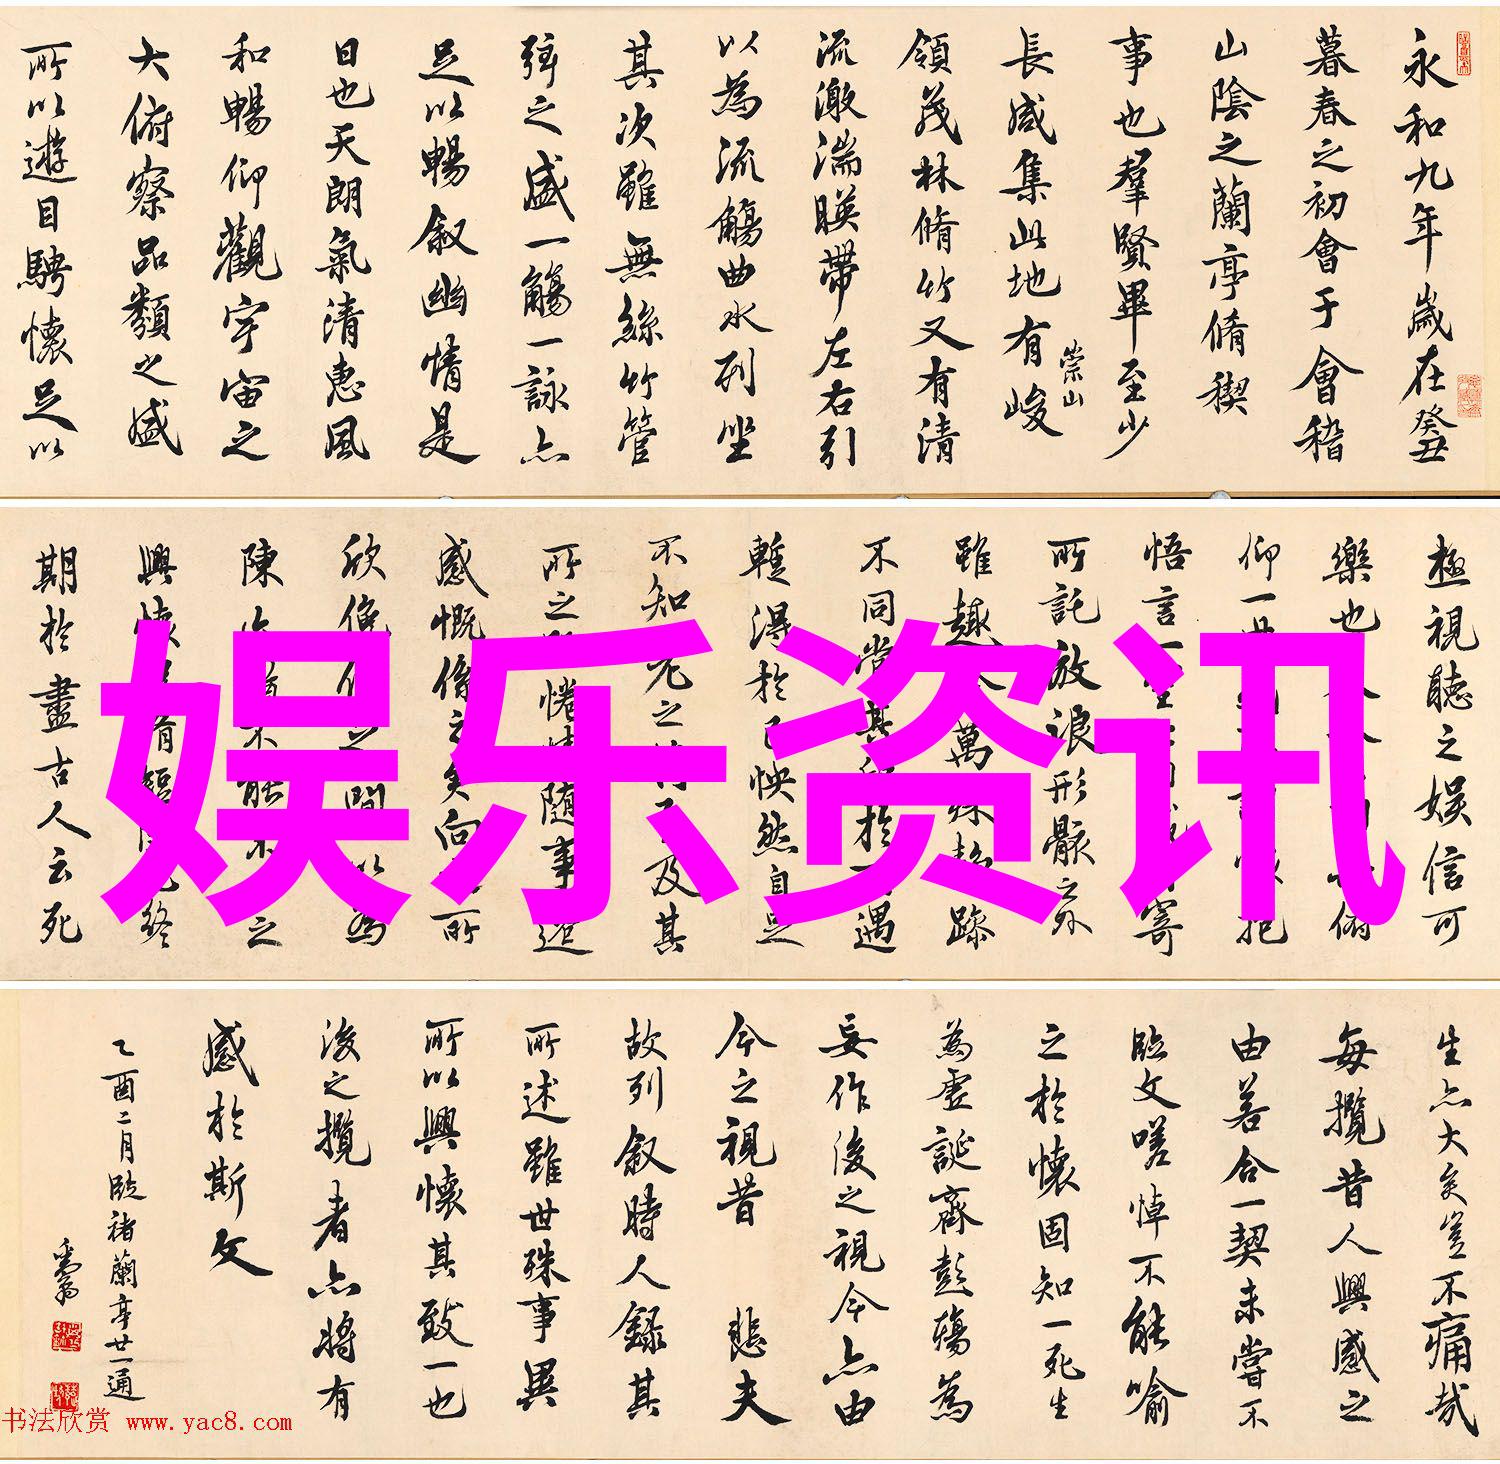 永和九年歲在癸丑
暮春之初會于會稽
山陰之蘭亭脩稧
事也羣賢畢至少
長咸集此地有峻
崇山
領茂林脩竹又有清
流激湍暎帶左右引
以為流觴曲水列坐
其次雖無絲竹管
弦之盛一觴一詠亦
足以暢叙幽情是
日也天朗氣清惠風
和暢仰觀宇宙之
大俯察品類之盛
所以遊目騁懷足以
極視聽之娛信可
樂也
仰一世
悟言一室之內
所託放浪形骸之外
雖趣
不同當其
遇
暫得於己怏然自足
不知老之
及其
所之
惓情隨事遷
感慨係之矣向
所
欣俛仰之間以為
陳
之
興懷
終
期於盡古人云死
生亦大矣豈不痛哉
每攬昔人興感之
由若合一契未嘗不
臨文嗟悼不能喻
之於懷固知一死生
為虛誕齊彭殤為
妄作後之視今亦由
今之視昔 悲夫
故列叙時人錄其
所述雖世殊事異
所以興懷其致一也
後之攬者亦將有
感於斯文
乙酉二月臨褚蘭亭廿一通
娱乐资讯
书法欣赏 www.yac8.com